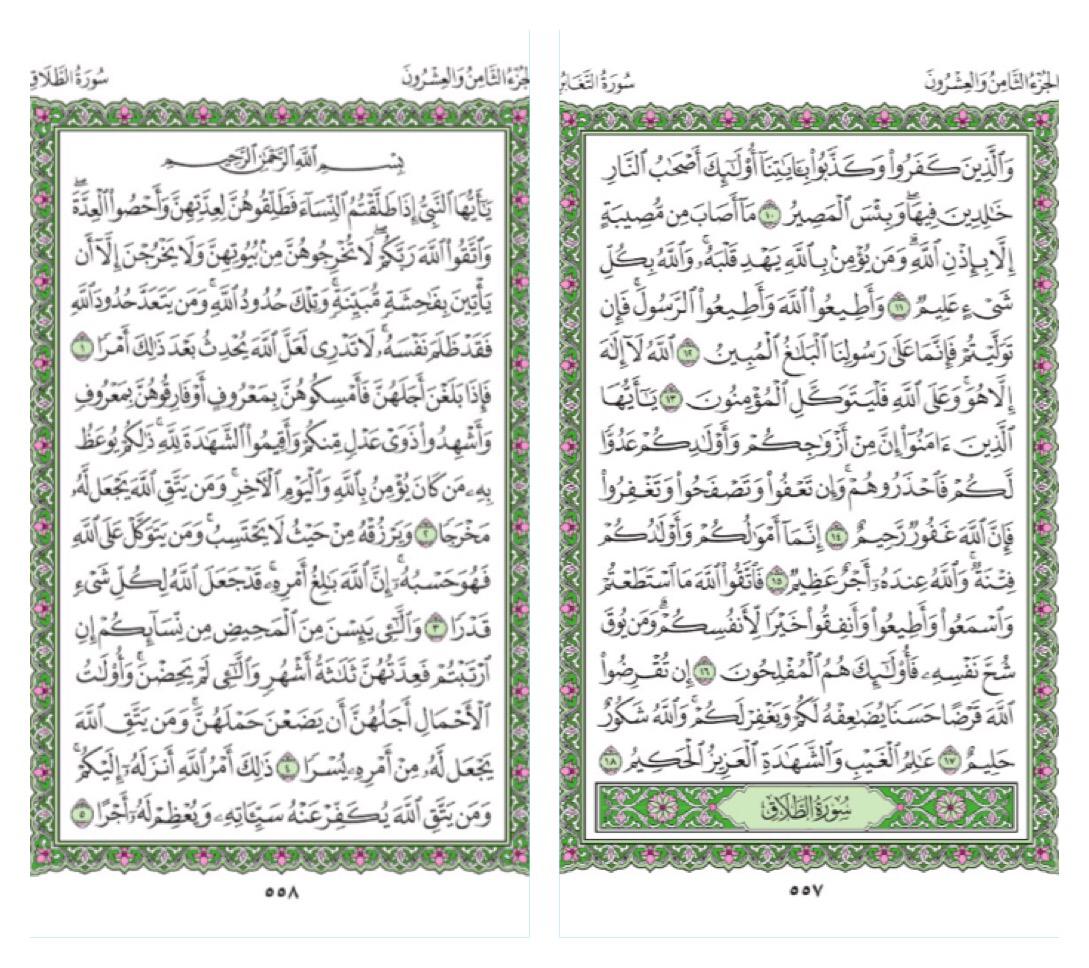 الجزء الثامن والعشرون
سورة التغابن
وَٱلَّذِينَ كَفَرُواْ وَكَذَّبُواْ بِـَٔايَٰتِنَآ أُوْلَٰٓئِكَ أَصۡحَٰبُ ٱلنَّارِ
خَٰلِدِينَ فِيهَاۖ وَبِئۡسَ ٱلۡمَصِيرُ ١٠ مَآ أَصَابَ مِن مُّصِيبَةٍ
إِلَّا بِإِذۡنِ ٱللَّهِۗ وَمَن يُؤۡمِنۢ بِٱللَّهِ يَهۡدِ قَلۡبَهُۥۚ وَٱللَّهُ بِكُلِّ
شَيۡءٍ عَلِيمٞ ١١ وَأَطِيعُواْ ٱللَّهَ وَأَطِيعُواْ ٱلرَّسُولَۚ فَإِن
تَوَلَّيۡتُمۡ فَإِنَّمَا عَلَىٰ رَسُولِنَا ٱلۡبَلَٰغُ ٱلۡمُبِينُ ١٢ ٱللَّهُ لَآ إِلَٰهَ
إِلَّا هُوَۚ وَعَلَى ٱللَّهِ فَلۡيَتَوَكَّلِ ٱلۡمُؤۡمِنُونَ ١٣ يَٰٓأَيُّهَا
ٱلَّذِينَ ءَامَنُوٓاْ إِنَّ مِنۡ أَزۡوَٰجِكُمۡ وَأَوۡلَٰدِكُمۡ عَدُوّٗا
لَّكُمۡ فَٱحۡذَرُوهُمۡۚ وَإِن تَعۡفُواْ وَتَصۡفَحُواْ وَتَغۡفِرُواْ
فَإِنَّ ٱللَّهَ غَفُورٞ رَّحِيمٌ ١٤ إِنَّمَآ أَمۡوَٰلُكُمۡ وَأَوۡلَٰدُكُمۡ
فِتۡنَةٞۚ وَٱللَّهُ عِندَهُۥٓ أَجۡرٌ عَظِيمٞ ١٥ فَٱتَّقُواْ ٱللَّهَ مَا ٱسۡتَطَعۡتُمۡ
وَٱسۡمَعُواْ وَأَطِيعُواْ وَأَنفِقُواْ خَيۡرٗا لِّأَنفُسِكُمۡۗ وَمَن يُوقَ
شُحَّ نَفۡسِهِۦ فَأُوْلَٰٓئِكَ هُمُ ٱلۡمُفۡلِحُونَ ١٦ إِن تُقۡرِضُواْ
ٱللَّهَ قَرۡضًا حَسَنٗا يُضَٰعِفۡهُ لَكُمۡ وَيَغۡفِرۡ لَكُمۡۚ وَٱللَّهُ شَكُورٌ
حَلِيمٌ ١٧ عَٰلِمُ ٱلۡغَيۡبِ وَٱلشَّهَٰدَةِ ٱلۡعَزِيزُ ٱلۡحَكِيمُ ١٨
سورة الطلاق
٥٥٧
الجزء الثامن والعشرون
سورة الطلاق
بِسۡمِ ٱللَّهِ ٱلرَّحۡمَٰنِ ٱلرَّحِيمِ
يَٰٓأَيُّهَا ٱلنَّبِيُّ إِذَا طَلَّقۡتُمُ ٱلنِّسَآءَ فَطَلِّقُوهُنَّ لِعِدَّتِهِنَّ وَأَحۡصُواْ ٱلۡعِدَّةَۖ
وَٱتَّقُواْ ٱللَّهَ رَبَّكُمۡۖ لَا تُخۡرِجُوهُنَّ مِنۢ بُيُوتِهِنَّ وَلَا يَخۡرُجۡنَ إِلَّآ أَن
يَأۡتِينَ بِفَٰحِشَةٖ مُّبَيِّنَةٖۚ وَتِلۡكَ حُدُودُ ٱللَّهِۚ وَمَن يَتَعَدَّ حُدُودَ ٱللَّهِ
فَقَدۡ ظَلَمَ نَفۡسَهُۥۚ لَا تَدۡرِي لَعَلَّ ٱللَّهَ يُحۡدِثُ بَعۡدَ ذَٰلِكَ أَمۡرٗا ١
فَإِذَا بَلَغۡنَ أَجَلَهُنَّ فَأَمۡسِكُوهُنَّ بِمَعۡرُوفٍ أَوۡ فَارِقُوهُنَّ بِمَعۡرُوفٖ
وَأَشۡهِدُواْ ذَوَيۡ عَدۡلٖ مِّنكُمۡ وَأَقِيمُواْ ٱلشَّهَٰدَةَ لِلَّهِۚ ذَٰلِكُمۡ يُوعَظُ
بِهِۦ مَن كَانَ يُؤۡمِنُ بِٱللَّهِ وَٱلۡيَوۡمِ ٱلۡأٓخِرِۚ وَمَن يَتَّقِ ٱللَّهَ يَجۡعَل لَّهُۥ
مَخۡرَجٗا ٢ وَيَرۡزُقۡهُ مِنۡ حَيۡثُ لَا يَحۡتَسِبُۚ وَمَن يَتَوَكَّلۡ عَلَى ٱللَّهِ
فَهُوَ حَسۡبُهُۥٓۚ إِنَّ ٱللَّهَ بَٰلِغُ أَمۡرِهِۦۚ قَدۡ جَعَلَ ٱللَّهُ لِكُلِّ شَيۡءٖ
قَدۡرٗا ٣ وَٱلَّٰٓـِٔي يَئِسۡنَ مِنَ ٱلۡمَحِيضِ مِن نِّسَآئِكُمۡ إِنِ
ٱرۡتَبۡتُمۡ فَعِدَّتُهُنَّ ثَلَٰثَةُ أَشۡهُرٖ وَٱلَّٰٓـِٔي لَمۡ يَحِضۡنَۚ وَأُوْلَٰتُ
ٱلۡأَحۡمَالِ أَجَلُهُنَّ أَن يَضَعۡنَ حَمۡلَهُنَّۚ وَمَن يَتَّقِ ٱللَّهَ
يَجۡعَل لَّهُۥ مِنۡ أَمۡرِهِۦ يُسۡرٗا ٤ ذَٰلِكَ أَمۡرُ ٱللَّهِ أَنزَلَهُۥٓ إِلَيۡكُمۡۚ
وَمَن يَتَّقِ ٱللَّهَ يُكَفِّرۡ عَنۡهُ سَيِّـَٔاتِهِۦ وَيُعۡظِمۡ لَهُۥٓ أَجۡرًا ٥
٥٥٨